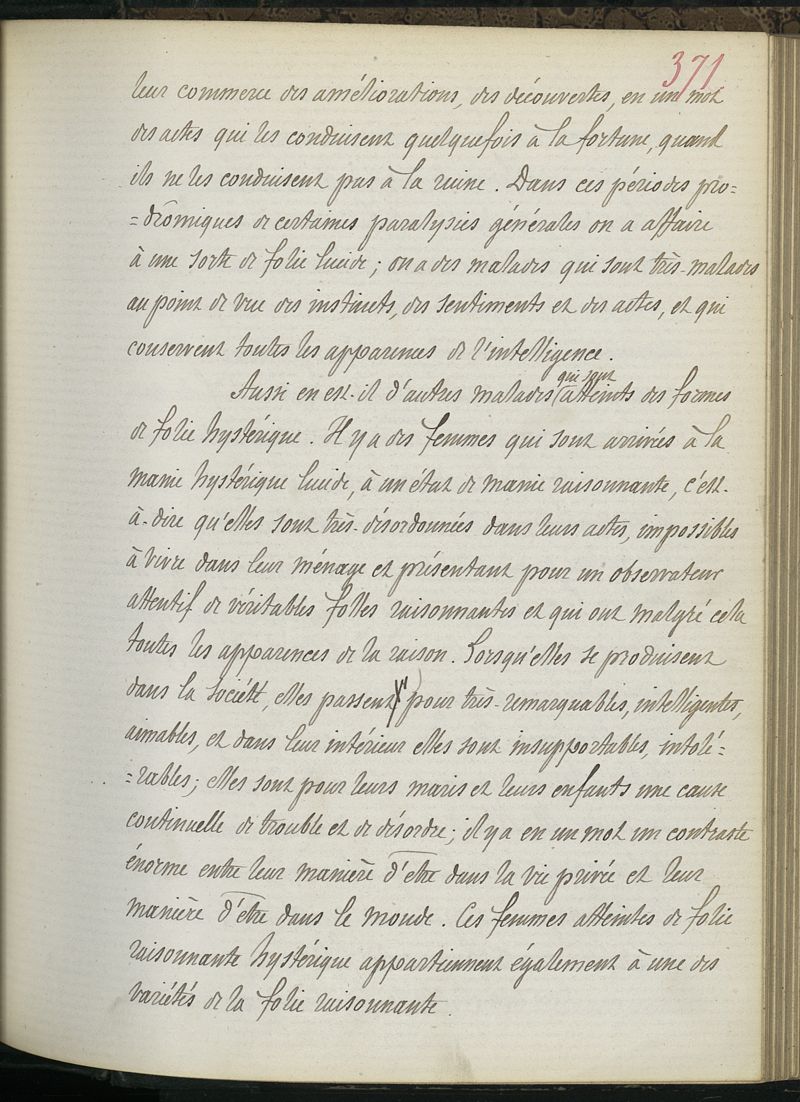 371
leur commerce des améliorations, des découvertes, en un mot
des actes qui les conduisent quelquefois à la fortune, quand
ils ne les conduisent pas à la ruine. Dans ces périodes pro=
=drômiques de certaines paralysies générales on a affaire
à une sorte de folie lucide; on a des malades qui sont très-malades
au point de vue des instincts, des sentiments et des actes, et qui
conservent toutes les apparences de l'intelligence.
qui sont
Aussi en est-il d'autres malades atteints des formes
de folie hystérique. Il y a des femmes qui sont arrivées à la
manie hystérique lucide, à un état de manie raisonnante, c'est-
à-dire qu'elles sont très-désordonnées dans leurs actes, impossibles
à vivre dans leur ménage et présentant pour un observateur
attentif de véritables folles raisonnantes et qui ont malgré cela
toutes les apparences de la raison. Lorsqu'elles se produisent
dans la société, elles passent pour très-remarquables, intelligentes,
aimables, et dans leur intérieur elles sont insupportables, intolé-
=rables; elles sont pour leurs maris et leurs enfants une cause
continuelle de trouble et de désordre; il y a en un mot un contraste
énorme entre leur manière d'être dans la vie privée et leur
manière d'être dans le monde. Ces femmes atteintes de folie
raisonnante hystérique appartiennent également à une des
variétés de la folie raisonnante.